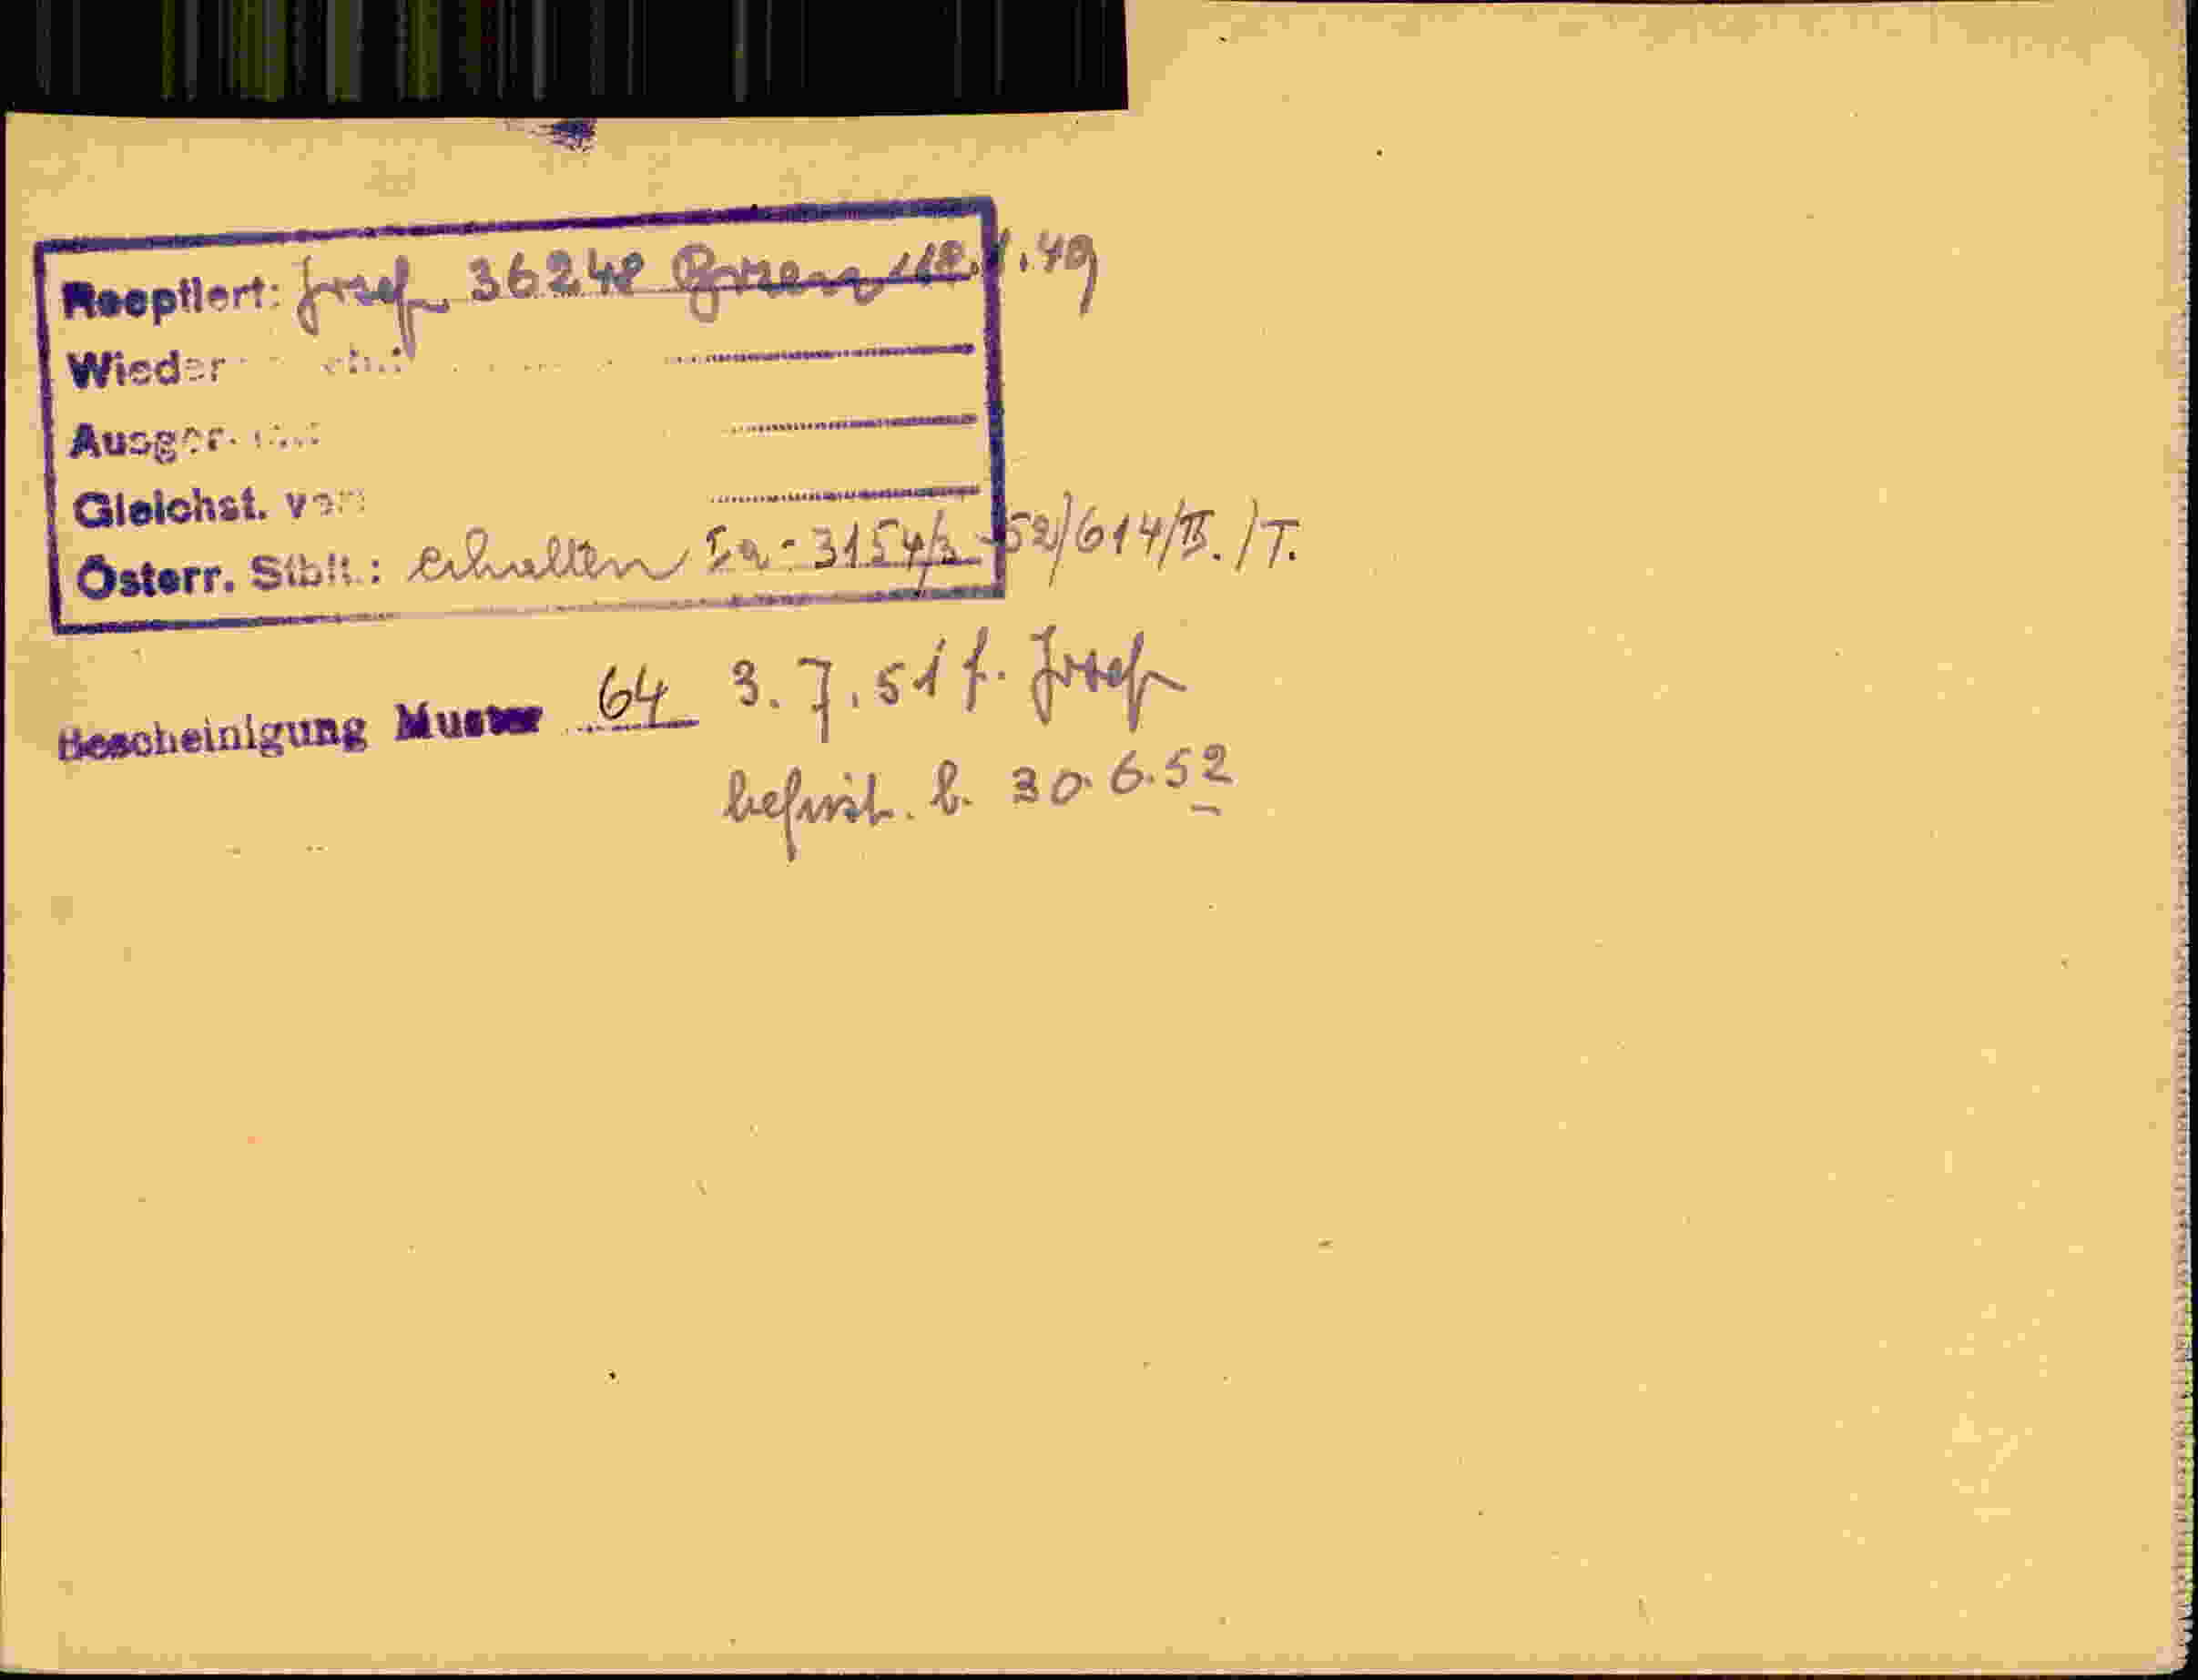 Reoptiert: Josef 36248 Bozen 18.1.49
Wieder
Ausger
Gleichst. von
Österr. Stbft.: erhalten Ia-3154/3-52/614/II./T.
Bescheinigung Muster 64 3.7.51 f. Josef
befrist. b. 30.6.52